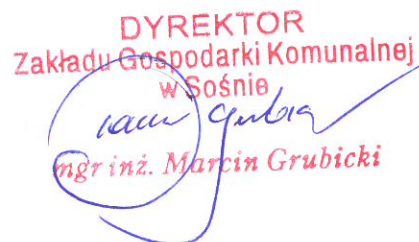 DYREKTOR
Zakładu Gospodarki Komunalnej
w Sośnie
mgr inż. Marcin Grubicki